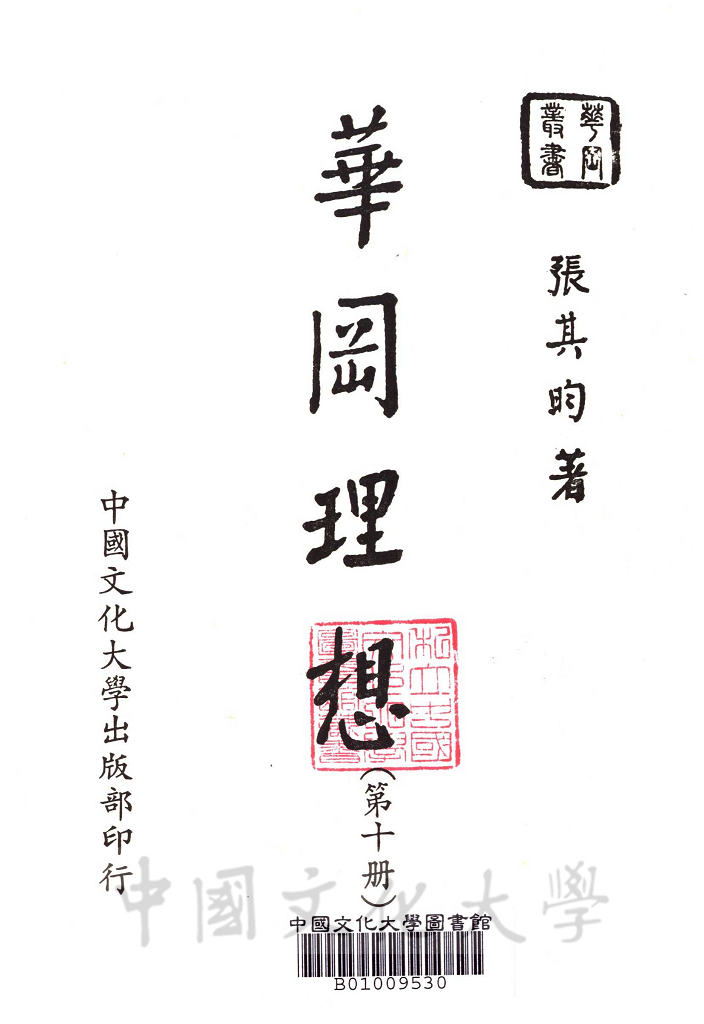 華岡
叢書
張其昀著
華岡理想
(第十册)
中國文化大學出版部印行
中國文化大學
中國文化大學圖書館
B01009530